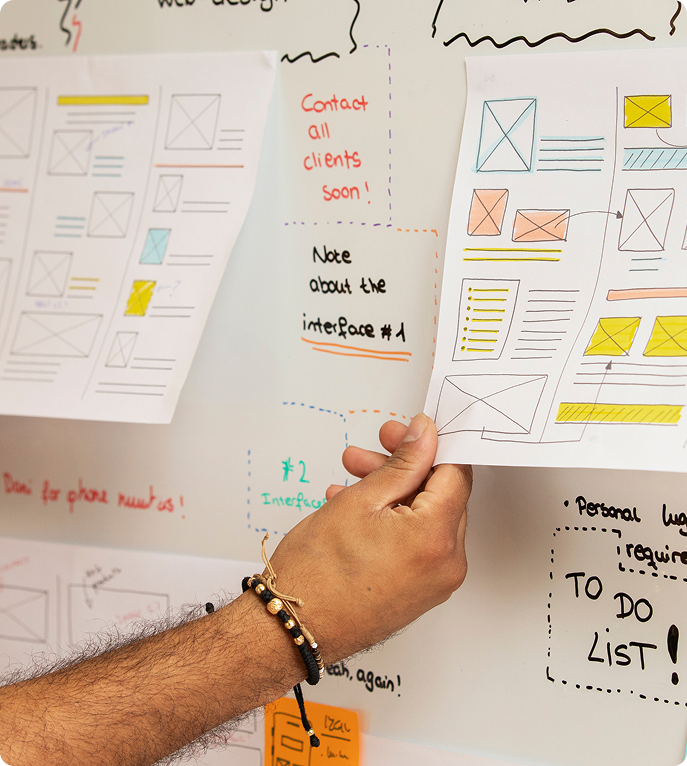 web design
Contact
all
clients
soon!
Note
about the
interface #1
#2
Interfaces
for phone
Personal
require
TO DO
LIST!
again!